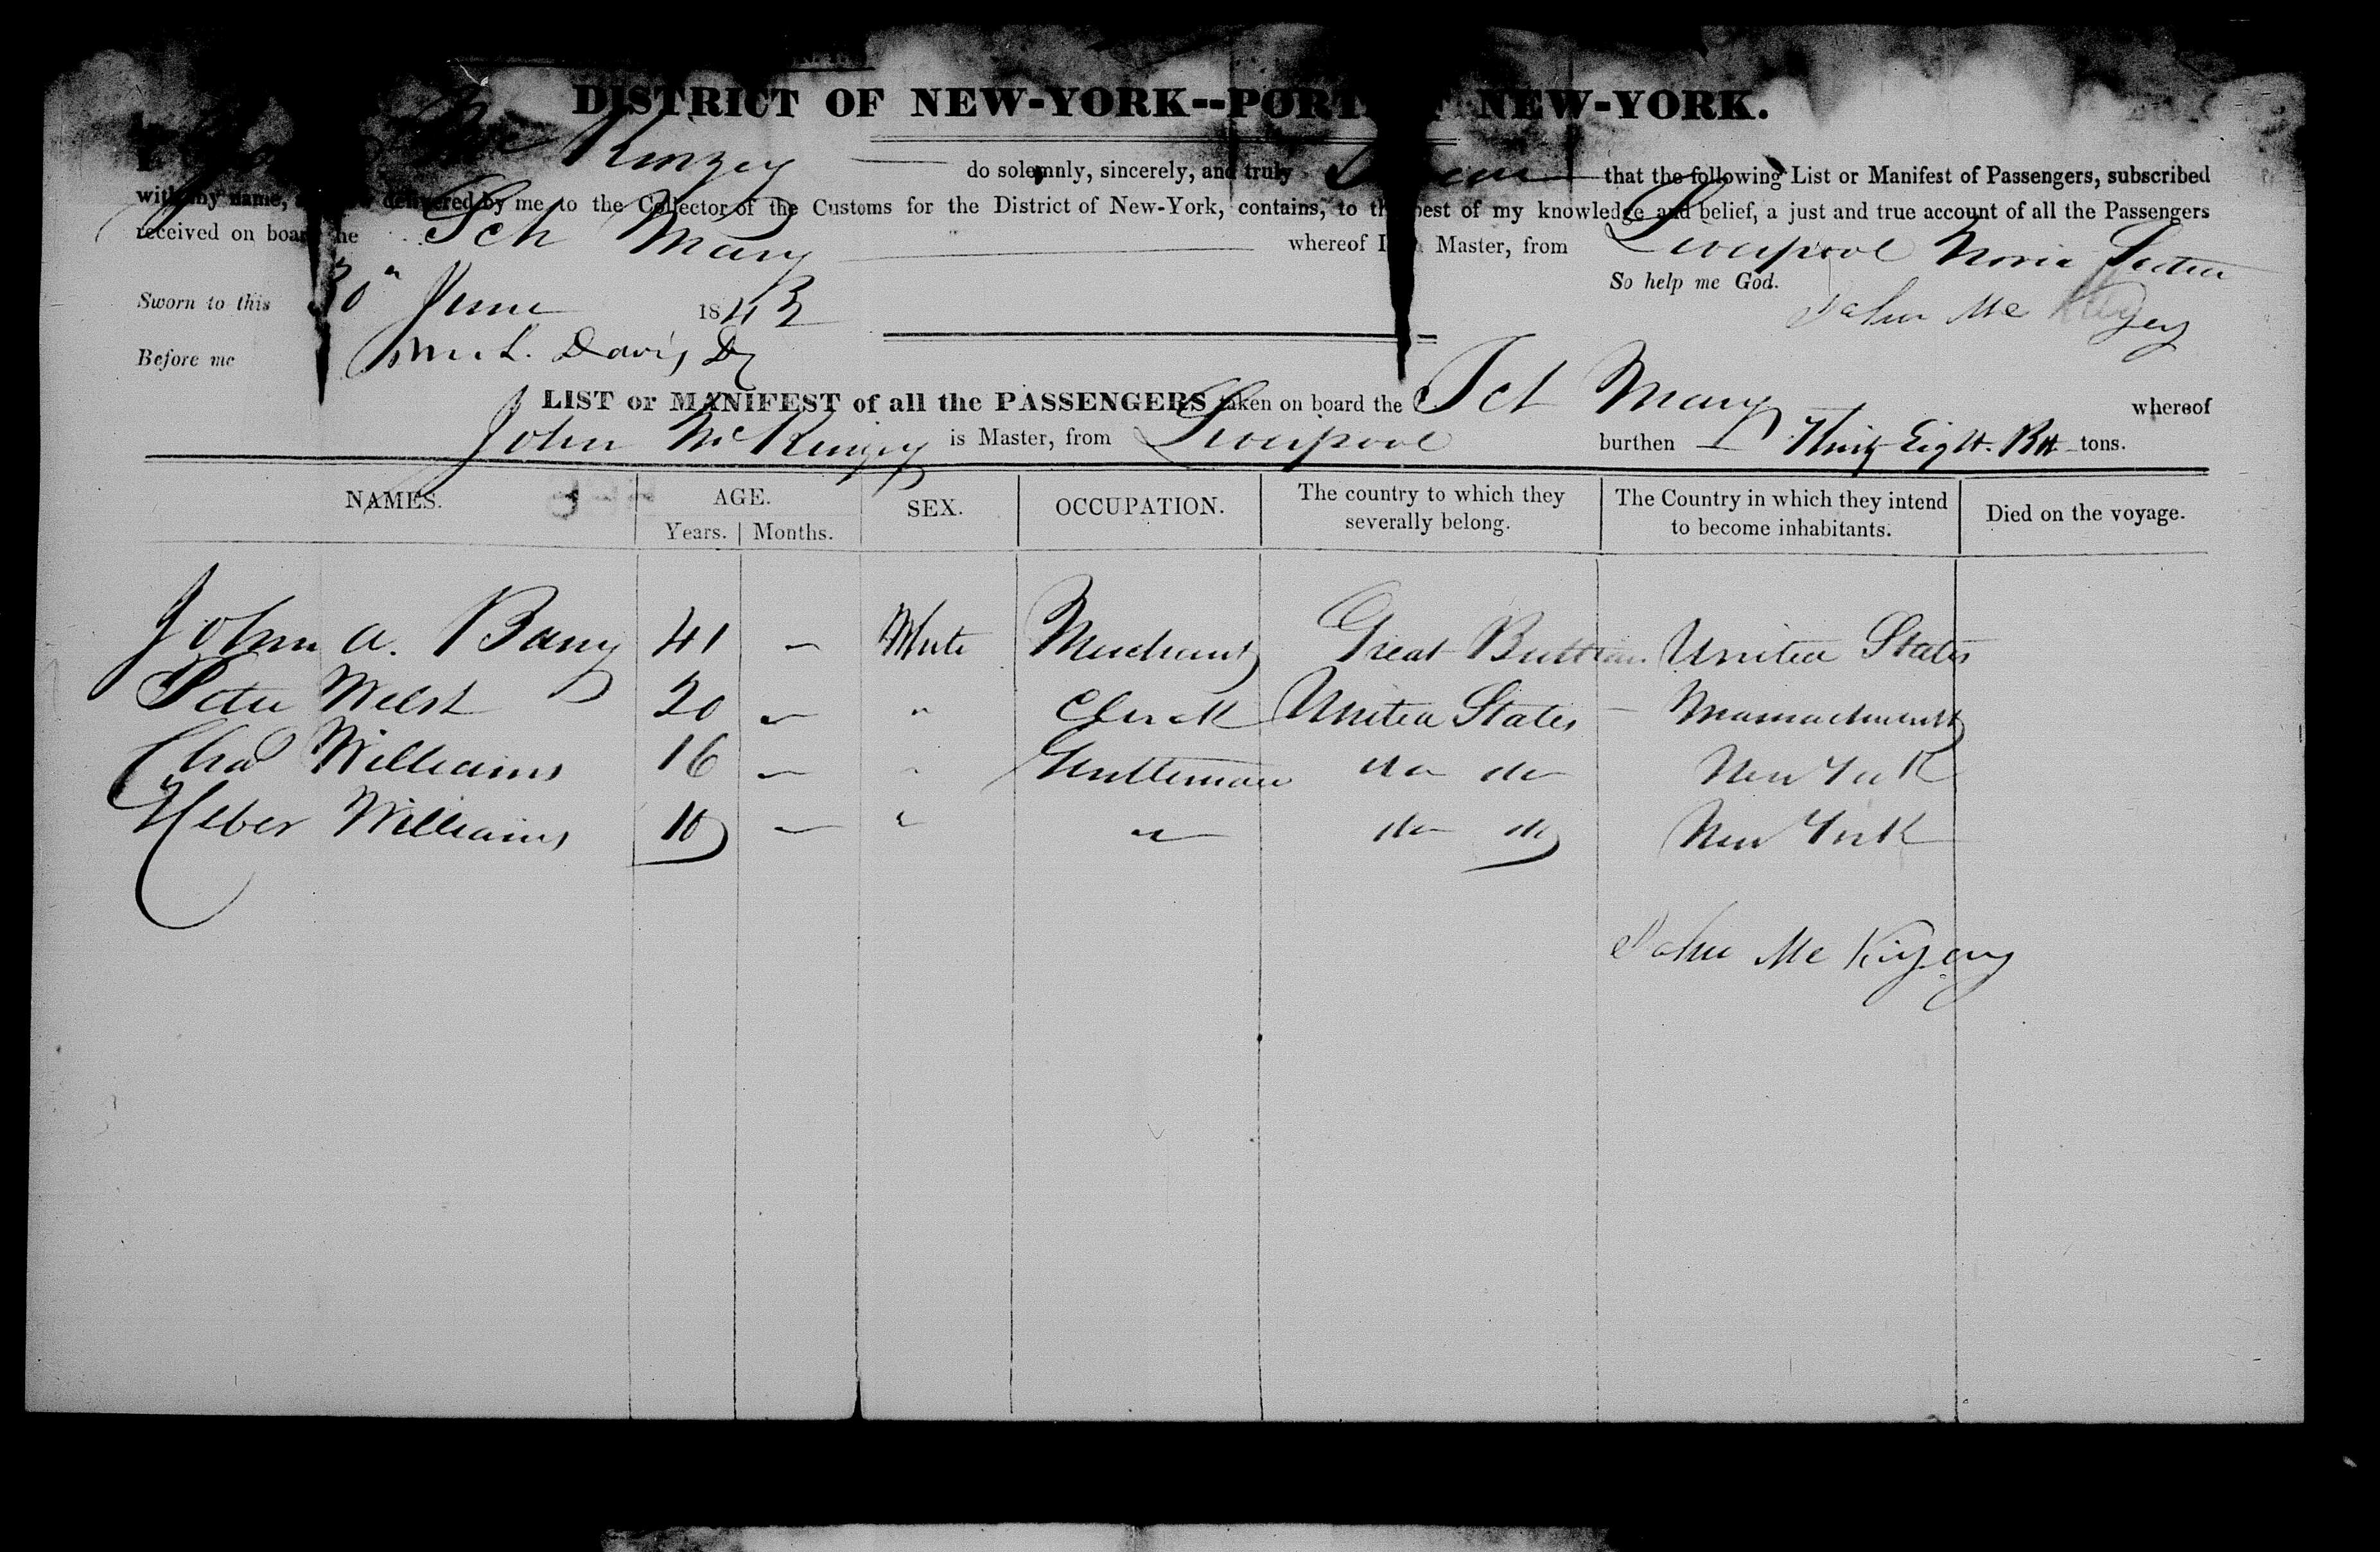 DISTRICT OF NEW-YORK--PORT NEW-YORK.
I Mc Kinzey do solemnly, sincerely, and truly that the following List or Manifest of Passengers, subscribed
with my name, delivered by me to the Collector of the Customs for the District of New-York, contains, to the best of my knowledge and belief, a just and true account of all the Passengers
received on board the Sch Mary whereof I Master, from Liverpool Nova Scotia
So help me God.
Sworn to this 30th June 1843
John Mc
Before me L. Davis
LIST or MANIFEST of all the PASSENGERS taken on board the Sch Mary whereof
John McKinzey is Master, from Liverpool burthen Thirty Eight tons.
NAMES. AGE. SEX. OCCUPATION. The country to which they severally belong. The Country in which they intend to become inhabitants. Died on the voyage.
Years. Months.
John A. Barry 41 – Merchant Great Britain United States
Peter Welsh 20 – " Clerk United States – Massachusetts
Chas Williams 16 – " Gentleman do do New York
Heber Williams 10 – " " do do New York
John Mc